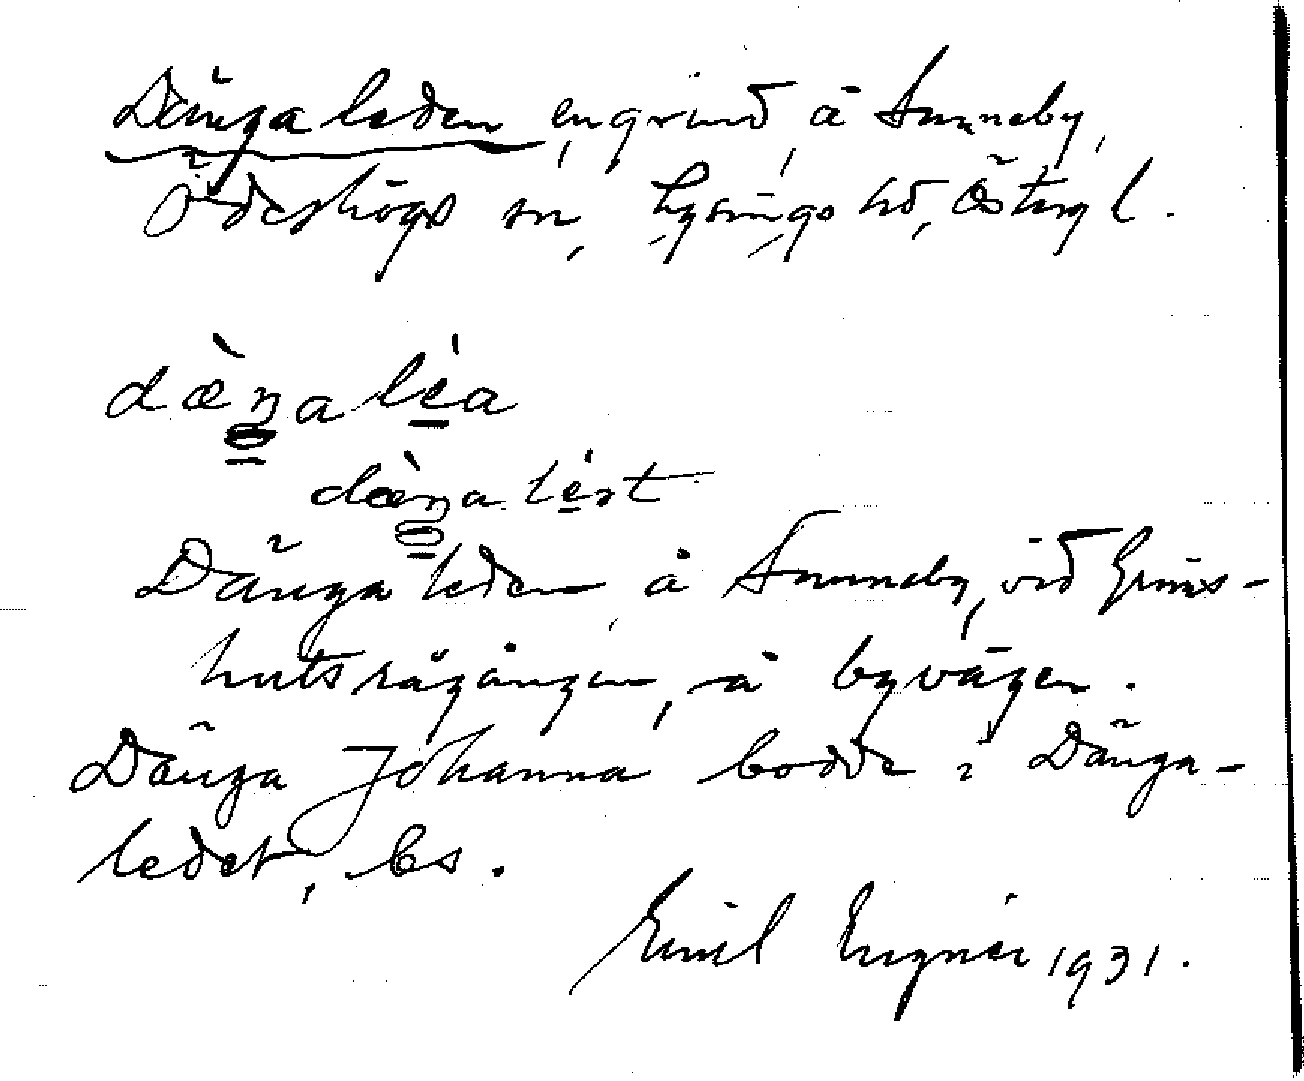 Dängaleden, en grind, å Sunneby,
Ödeshögs sn, Lysings hd, Östergl.
dæ̀ŋa léa
dæ̀ŋa lét
Dängaleden å Sunneby, vid Grims-
hultsrågången, å byvägen.
Dänga Johanna bodde i Dänga-
ledet, bs.
Emil Engnér 1931.